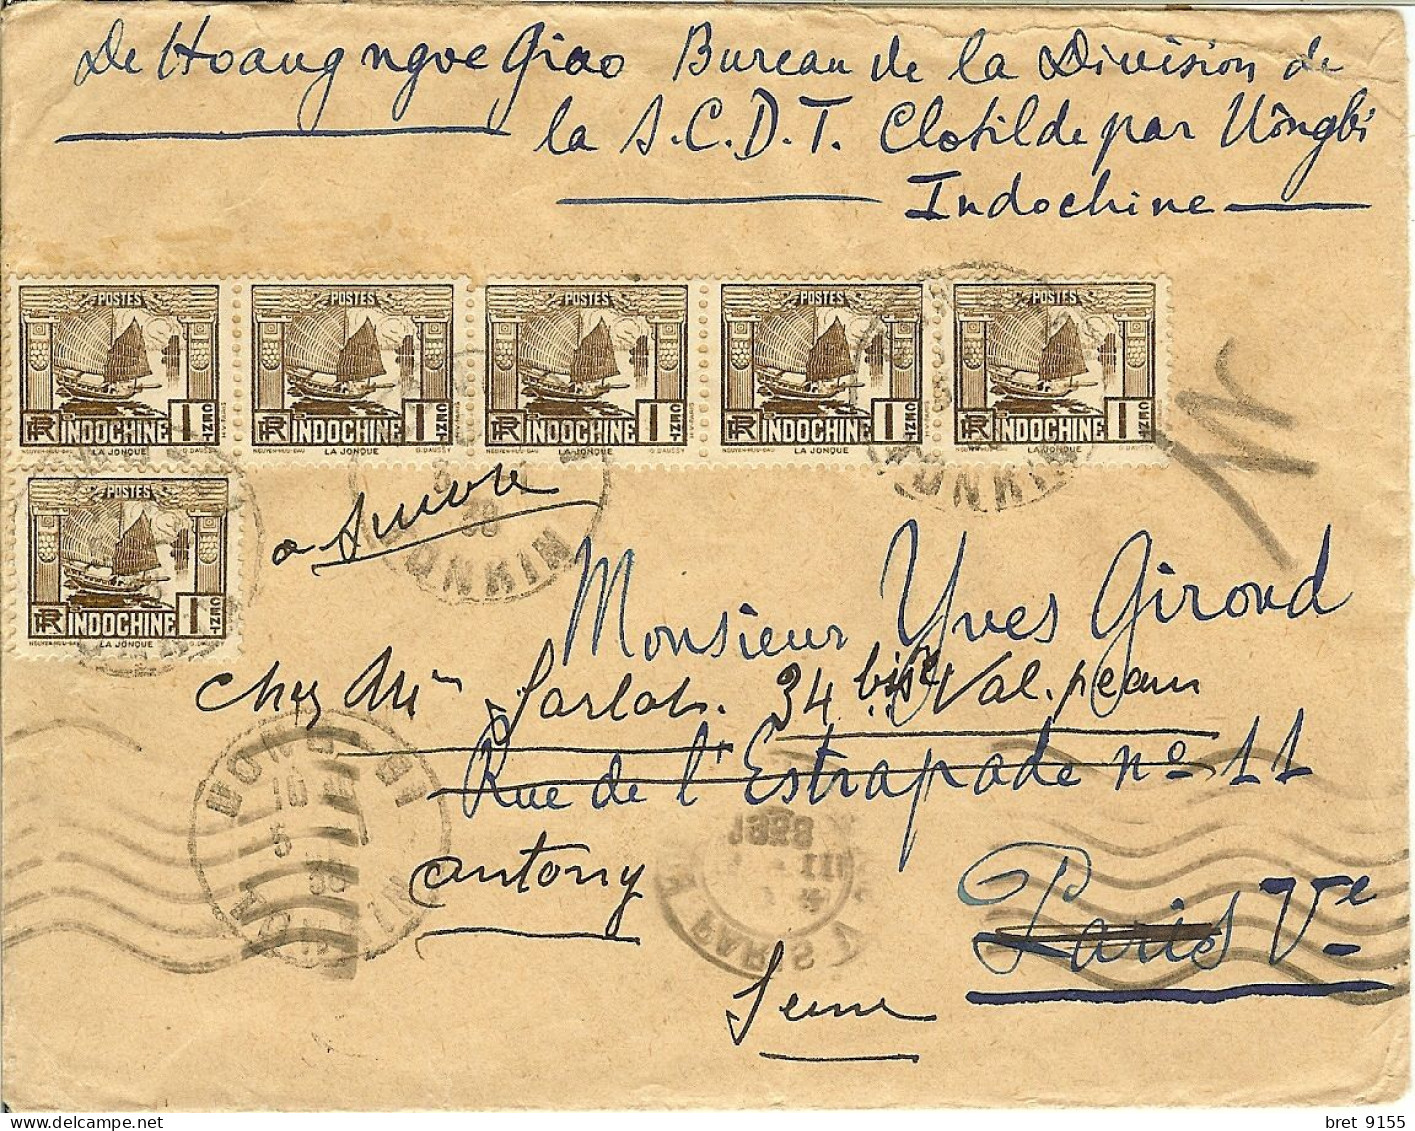 De Hoang ngoc Giao Bureau de la Division de
la S.C.D.T. Clotilde par Uôngbi
Indochine
POSTES POSTES POSTES POSTES POSTES
1 CENT 1 CENT 1 CENT 1 CENT 1 CENT
RF INDOCHINE RF INDOCHINE RF INDOCHINE RF INDOCHINE RF INDOCHINE
NGUYEN-HUU-DAU LA JONQUE G. DAUSSY NGUYEN-HUU-DAU LA JONQUE G. DAUSSY NGUYEN-HUU-DAU LA JONQUE G. DAUSSY NGUYEN-HUU-DAU LA JONQUE G. DAUSSY NGUYEN-HUU-DAU LA JONQUE G. DAUSSY
POSTES
1 CENT
RF INDOCHINE
NGUYEN-HUU-DAU LA JONQUE G. DAUSSY
a Suivre
TONKIN
TONKIN
Monsieur Yves Giroud
chez Mme Sarlat. 34 bis r Val. peau
Rue de l'Estrapade no 11
antony
Paris Ve
Seine
TONKIN
PARIS V
1938
bret 9155